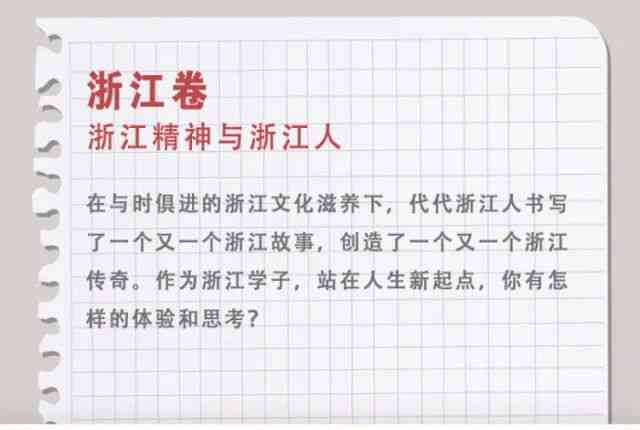 浙江卷
浙江精神与浙江人
在与时俱进的浙江文化滋养下，代代浙江人书写
了一个又一个浙江故事，创造了一个又一个浙江
传奇。作为浙江学子，站在人生新起点，你有怎
样的体验和思考？